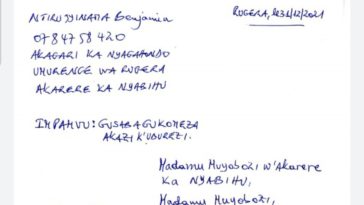 NTIRUJYINAMA Benjamin
RUGERA, le 31/12/2021
0784758420
AKAGARI KA NYAGAHONDO
UMURENGE WA RUGERA
AKARERE KA NYABIHU
IMPAMVU: GUSABA GUKOMEZA
AKAZI K'UBUREZI.
Madamu Muyobozi w'Akarere
KA NYABIHU,
Madamu Muyobozi,